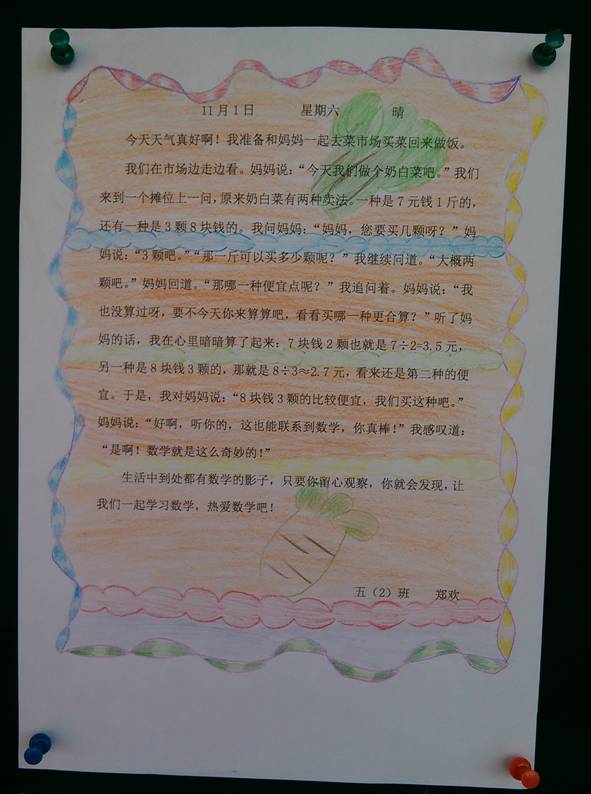 11月1日 星期六 晴
今天天气真好啊！我准备和妈妈一起去菜市场买菜回来做饭。
我们在市场边走边看。妈妈说：“今天我們做个奶白菜吧。”我们
来到一个摊位上一问，原来奶白菜有两种卖法。一种是7元钱1斤的，
还有一种是3颗8块钱的。我问妈妈：“妈妈，您要买几颗呀？”妈
妈说：“3颗吧。”“那一斤可以买多少颗呢？”我继续问道。“大概两
颗吧。”妈妈回道。“那哪一种便宜点呢？”我追问着。妈妈说：“我
也没算过呀，要不今天你来算算吧，看看买哪一种更合算？”听了妈
妈的话，我在心里暗暗算了起来：7块钱2颗也就是7÷2=3.5元，
另一种是8块钱3颗的，那就是8÷3≈2.7元，看来还是第二种的便
宜。于是，我对妈妈说：“8块钱3颗的比较便宜，我们买这种吧。”
妈妈说：“好啊，听你的，这也能联系到数学，你真棒！”我感叹道：
“是啊！数学就是这么奇妙的！”
生活中到处都有数学的影子，只要你留心观察，你就会发现，让
我们一起学习数学，热爱数学吧！
五（2）班 郑欢